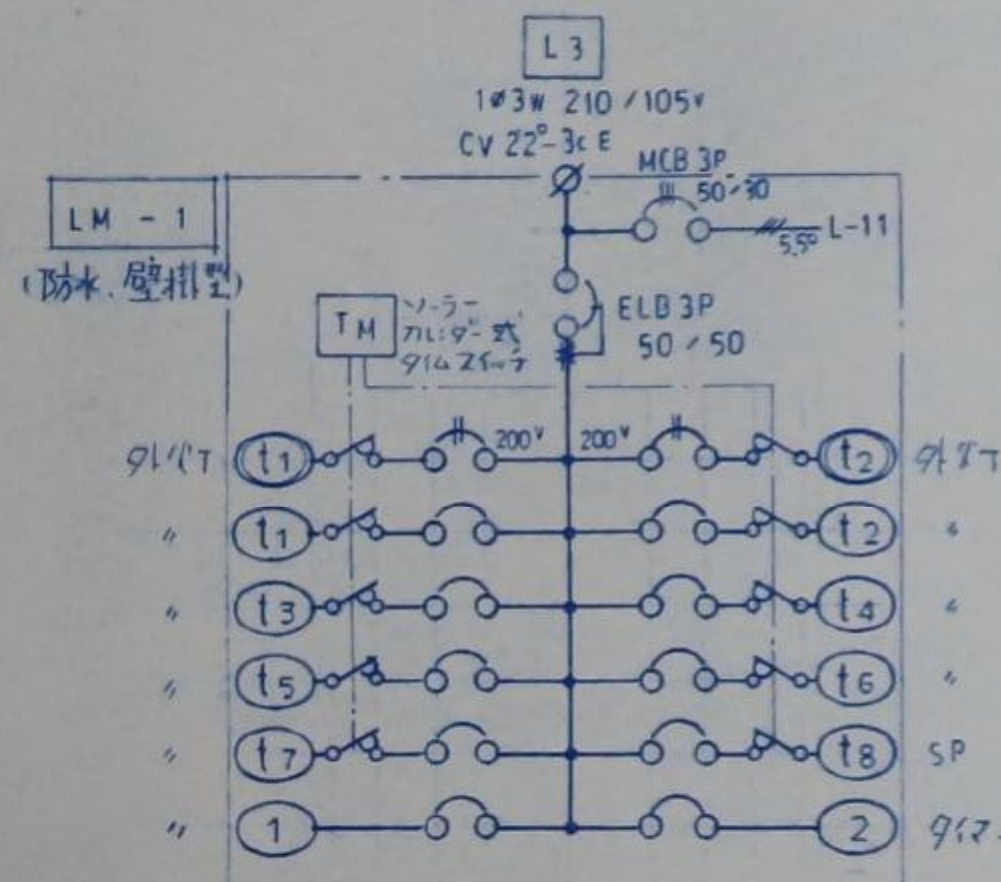 L 3
1φ3W 210/105V
CV 22□-3c E
MCB 3P
50/30
LM - 1
5.5□
L-11
(防水、壁掛型)
TM
ソーラー
カレンダー式
タイムスイッチ
ELB 3P
50/50
ガイトウ t1 200V 200V t2 ガイトウ
〃 t1 t2 〃
〃 t3 t4 〃
〃 t5 t6 〃
〃 t7 t8 SP
〃 1 2